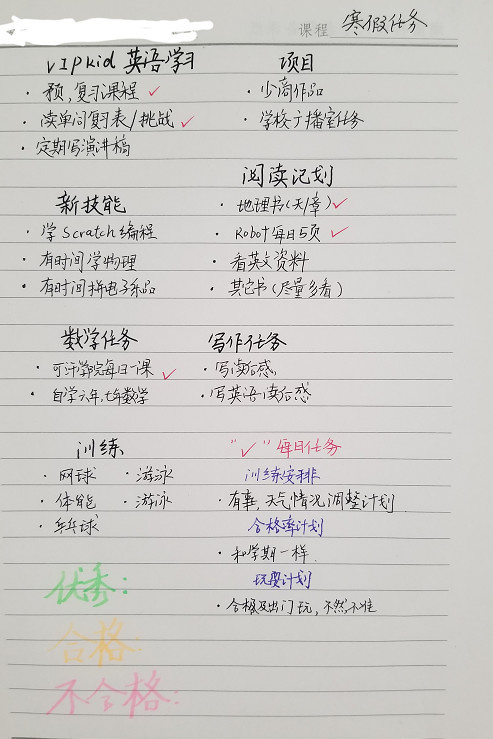 课程 寒假任务
vipkid 英语学习
· 预,复习课程 ✓
· 读单词复习表/挑战 ✓
· 定期写演讲稿
项目
· 少商作品
· 学校广播室任务
新技能
· 学Scratch编程
· 有时间学物理
· 有时间拼电子乐品
阅读记划
· 地理书(天/章) ✓
· Robot每日5页 ✓
· 看英文资料
· 其它书(尽量多看)
数学任务
· 可汗学院每日一课 ✓
· 自学六年,七年数学
写作任务
· 写读后感,
· 写英语读后感
训练
· 网球 · 游泳
· 体能 · 游泳
· 乒乓球
"✓"每日任务
训练安排
· 有事,天气情况调整计划
合格率计划
· 和学期一样.
玩耍计划
· 合格及出门玩,不然不准
优秀:
合格:
不合格: